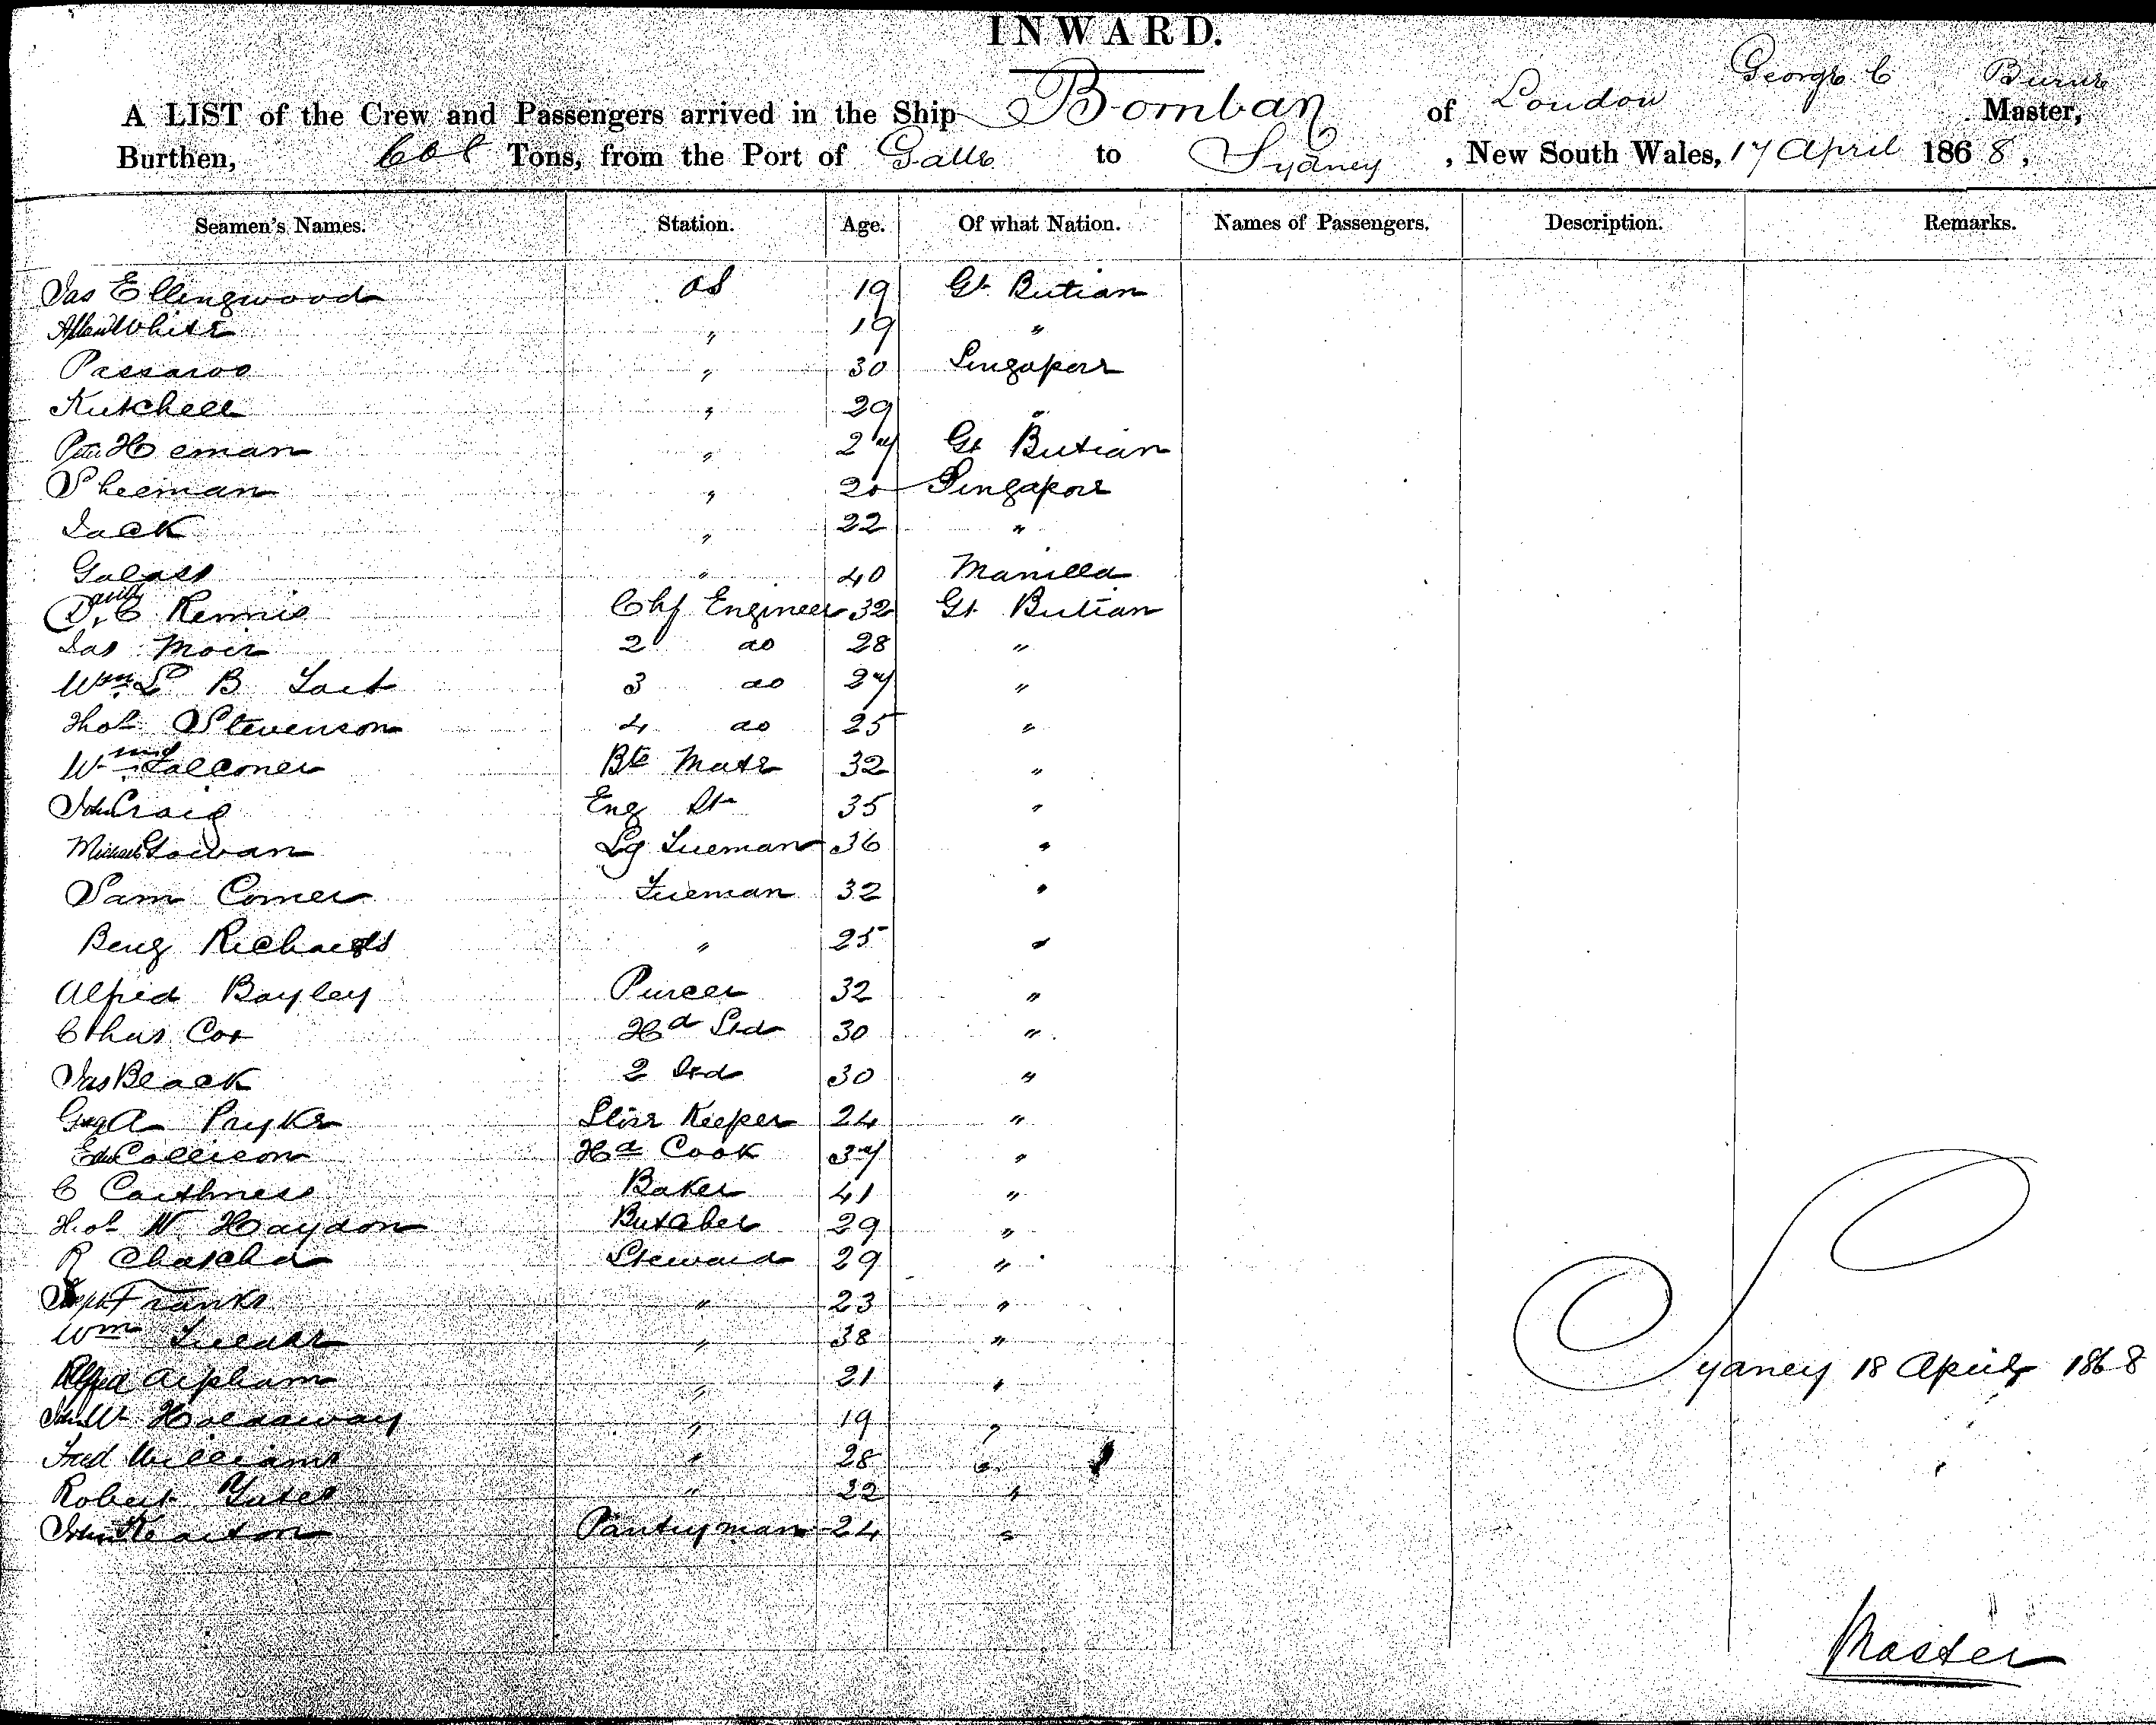 INWARD.
George C Burne
A LIST of the Crew and Passengers arrived in the Ship Bombay of London Master,
Burthen, Tons, from the Port of Galle to Sydney, New South Wales, 17 April 1868,
Seamen's Names. Station. Age. Of what Nation. Names of Passengers. Description. Remarks.
Jas Ellingwood OS 19 Gt Britian
White " 19 "
30 Singapore
Kutchell " 29 "
Peter Heman " 27 Gt Britian
Sheeman " 20 Singapore
Jack " 22 "
" 40 Manilla
Rennie Chf Engineer 32 Gt Britian
Jas Moir 2 do 28 "
Wm B Tait 3 do 27 "
Thos Stevenson 4 do 25 "
Wm Falconer Bte Mate 32 "
John Craig Eng St 35 "
Michael Gowan Lg Fireman 36 "
Sam Comer Fireman 32 "
Benj Richards " 25 "
Alfred Bayley Purcer 32 "
Chas Cox Hd Std 30 "
Jas Black 2 Std 30 "
Geo A Pryke Store Keeper 24 "
Ed Collison Hd Cook 37 "
C Caithness Baker 41 "
Thos W Haydon Butcher 29 "
R Steward 29 "
Franks " 23 "
Wm " 38 "
Alfred Aipham " 21 "
John W Holdaway " 19 "
Fred Williams " 28 "
Robert Yates " 22 "
John Kearton Pantryman 24 "
Sydney 18 April 1868
Master